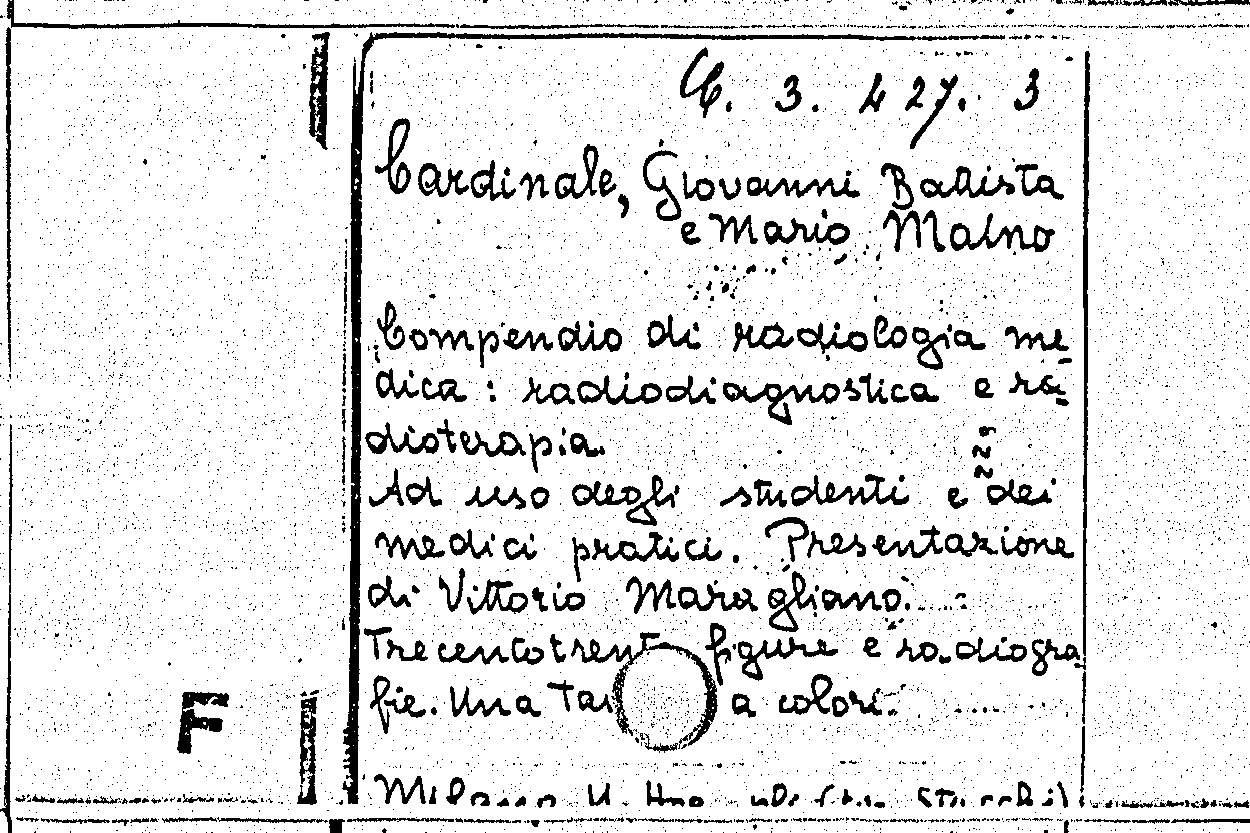 C. 3. 427. 3
Cardinale, Giovanni Battista
e Mario Malno
Compendio di radiologia me-
dica : radiodiagnostica e ra=
dioterapia.
Ad uso degli studenti e dei
medici pratici. Presentazione
di Vittorio Maragliano.
figure e radiogra-
fie. Una a colori.
F
Milano